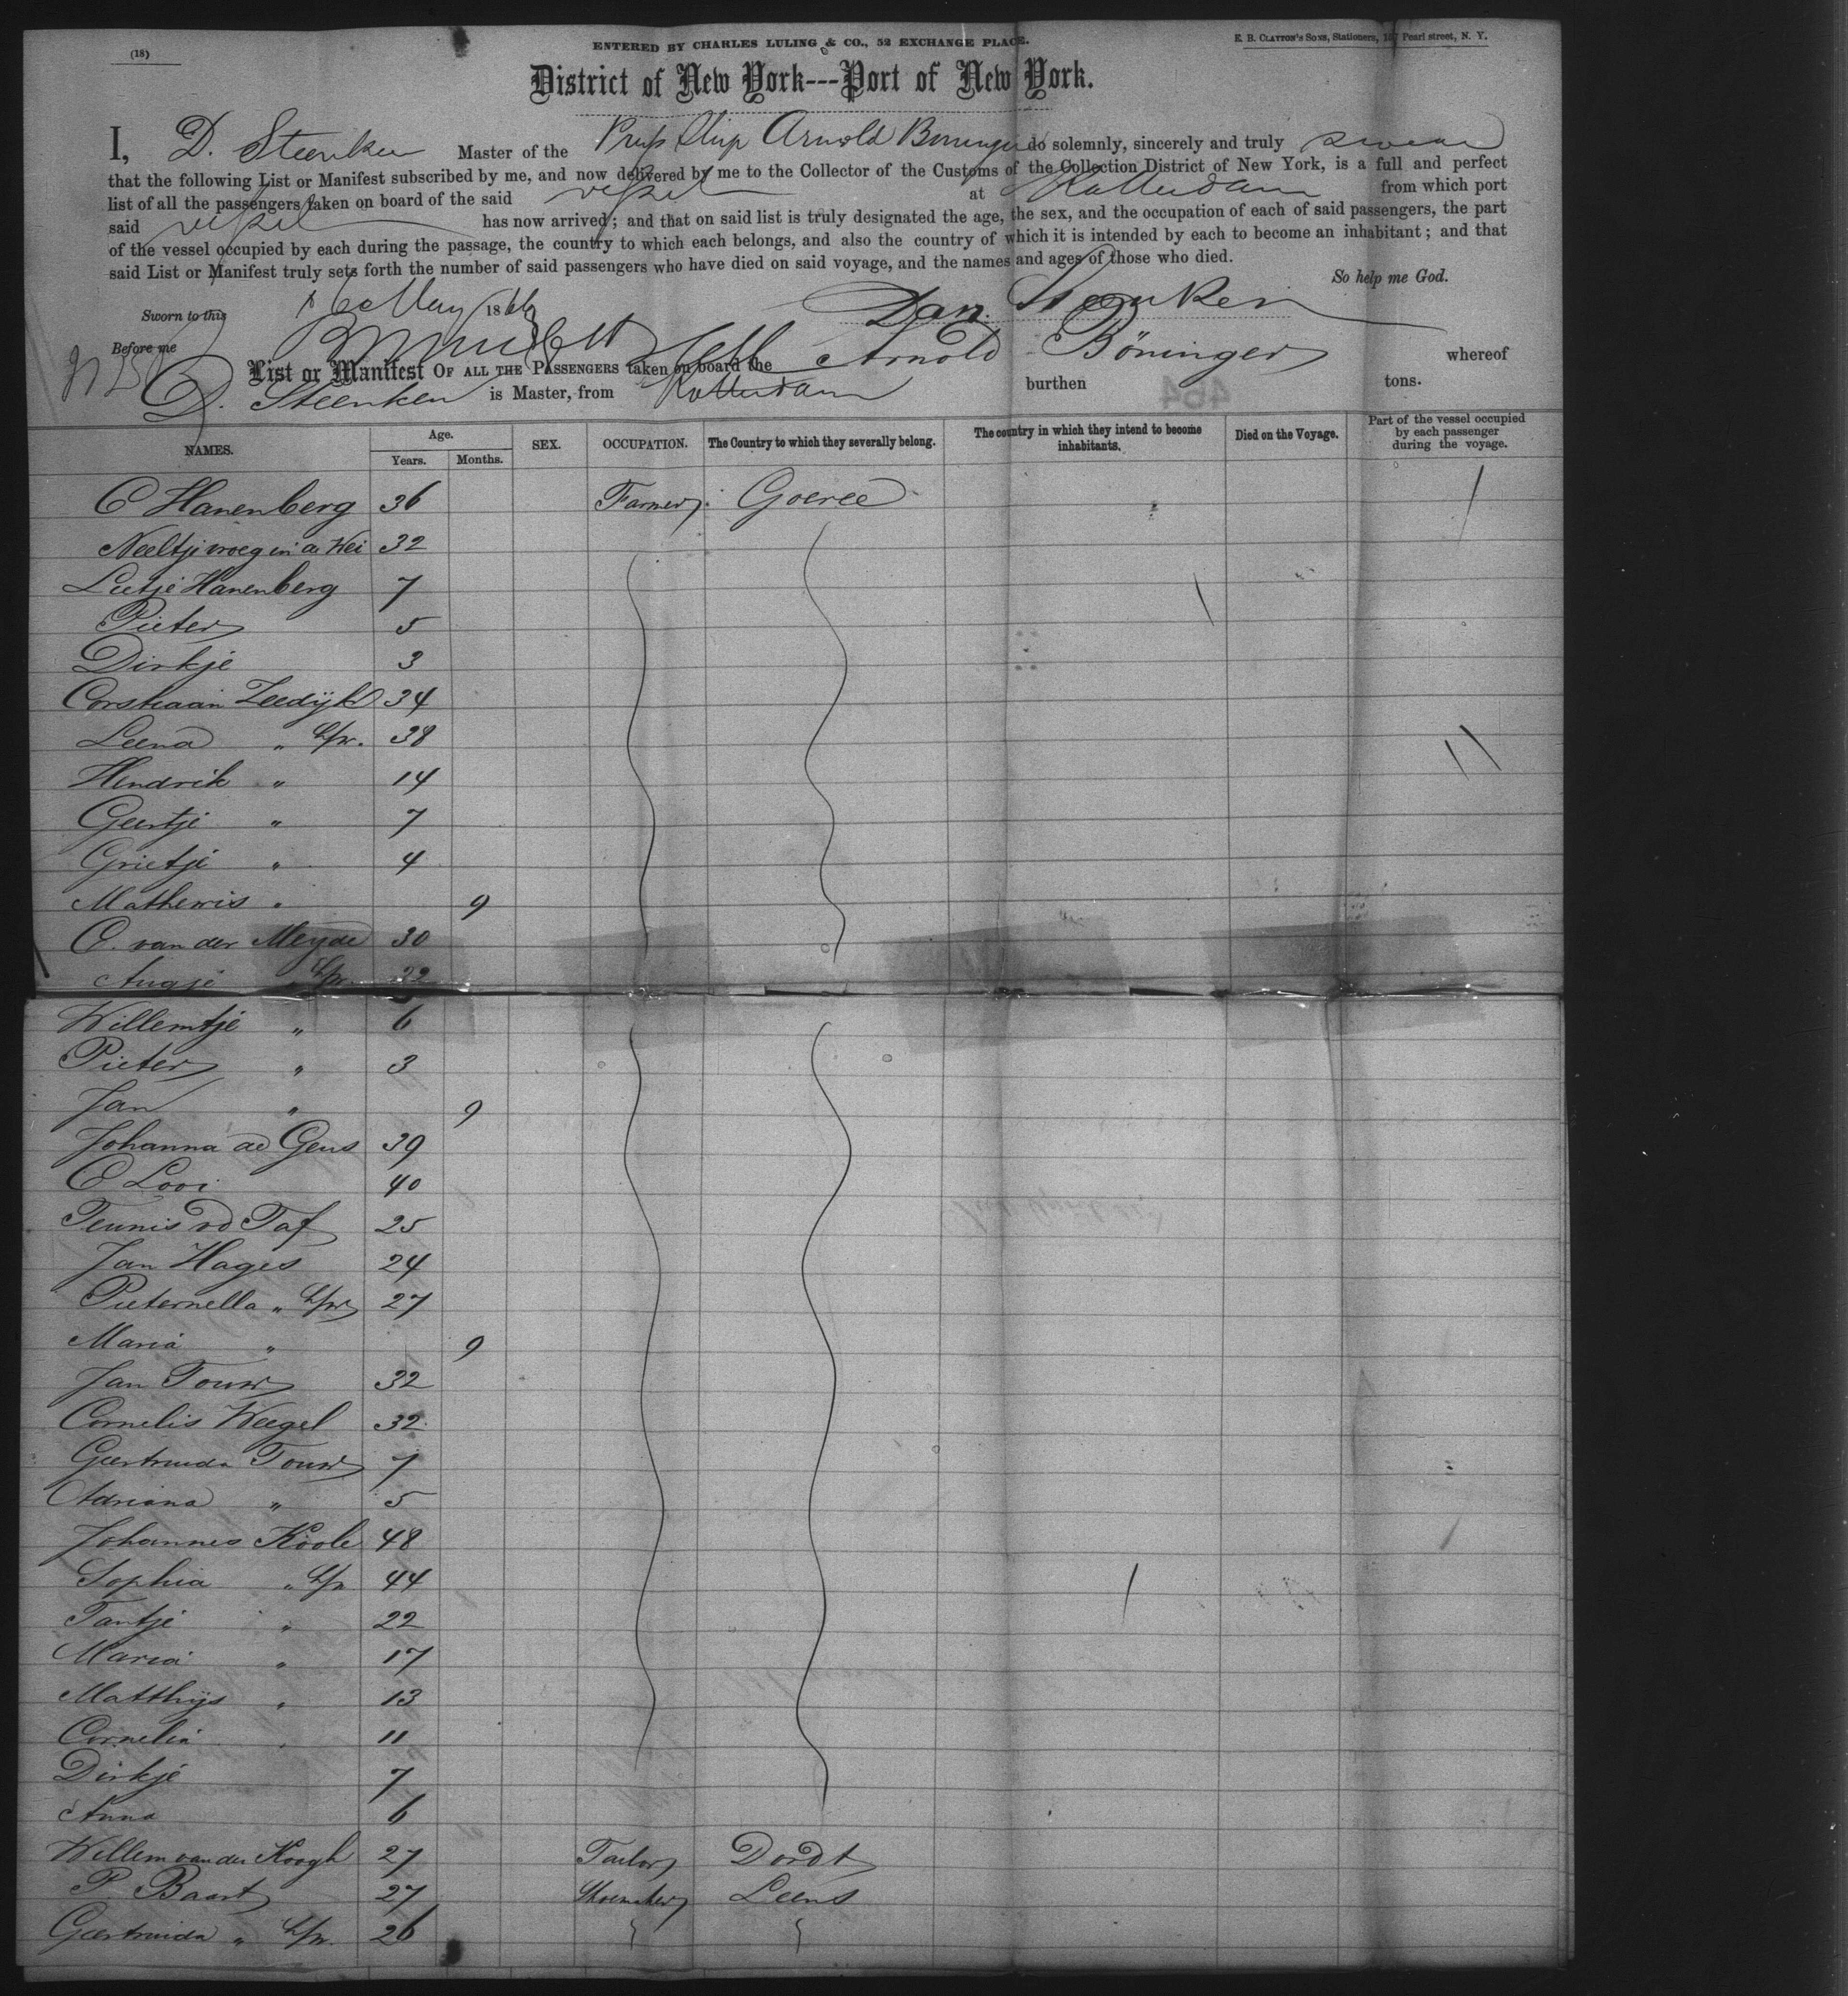 (18)
ENTERED BY CHARLES LULING & CO., 52 EXCHANGE PLACE.
E. B. CLAYTON'S SONS, Stationers, 157 Pearl street, N. Y.
District of New York---Port of New York.
I, D. Steenken Master of the Prus Ship Arnold Boninger do solemnly, sincerely and truly swear
that the following List or Manifest subscribed by me, and now delivered by me to the Collector of the Customs of the Collection District of New York, is a full and perfect
list of all the passengers taken on board of the said vessel at Rotterdam from which port
said vessel has now arrived; and that on said list is truly designated the age, the sex, and the occupation of each of said passengers, the part
of the vessel occupied by each during the passage, the country to which each belongs, and also the country of which it is intended by each to become an inhabitant; and that
said List or Manifest truly sets forth the number of said passengers who have died on said voyage, and the names and ages of those who died.
So help me God.
Sworn to this 16 May 1866
Dan. Steenken
Before me
List or Manifest OF ALL THE PASSENGERS taken on board the Arnold Böninger whereof
D. Steenken is Master, from Rotterdam burthen tons.
464
NAMES. Age. Years. Months. SEX. OCCUPATION. The Country to which they severally belong. The country in which they intend to become inhabitants. Died on the Voyage. Part of the vessel occupied by each passenger during the voyage.
C Hanenberg 36 Farmer Goeree
Neeltje vroeg in de Wei 32
Leetje Hanenberg 7
Pieter 5
Dirkje 3
Corstiaan Zeedijk 34
Leena " 38
Hendrik " 14
Geertje " 7
Grietje " 4
Mathewis " 9
C. van der Meyde 30
Augje 32
Willemtje " 6
Pieter " 3
Jan " 9
Johanna de Geus 39
C Looi 40
Teunis vd Taf 25
Jan Hages 24
Pieternella " 27
Maria " 9
Jan Touw 32
Cornelis Weegel 32
Geertruida Touw 7
Adriana " 5
Johannes Koole 48
Sophia " 44
Tantje " 22
Maria " 17
Matthijs " 13
Cornelia " 11
Dirkje 7
Anna 6
Willem van der Koogh 27 Tailor Dordt
P Baart 27 Shoemaker Leens
Geertruida " 26